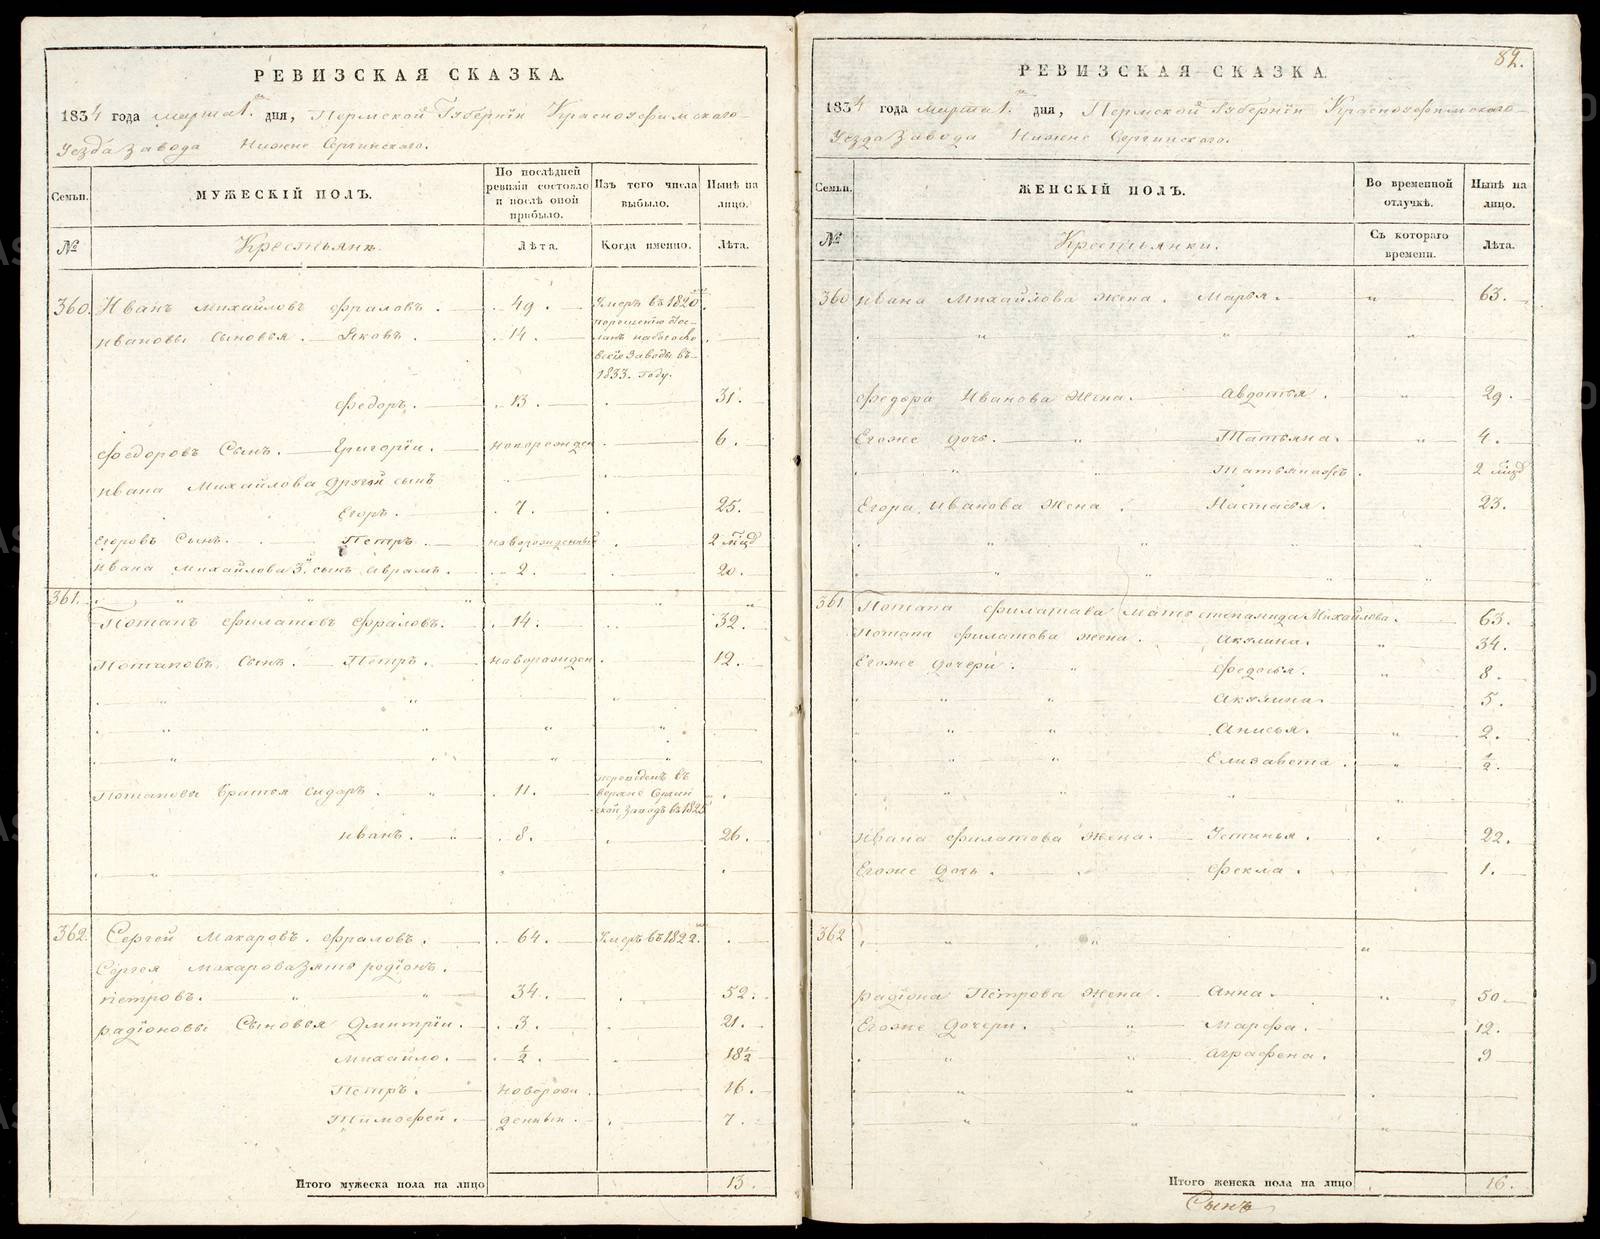 РЕВИЗСКАЯ СКАЗКА.
1834 года марта 1. дня, Пермской Губернїи Красноуфимскаго
Уезда завода Нижне Сергинскаго.
Семьи.
МУЖЕСКІЙ ПОЛЪ.
По послѣдней ревизіи состояло и послѣ оной прибыло.
Изъ того числа выбыло.
Нынѣ на лицо.
№
Крестьяне.
Лѣта.
Когда именно.
Лѣта.
360. Иванъ Михайловъ Фраловъ. 49. Умеръ въ 1820
Ивановы Сыновья. Яковъ. 14.
Заводы въ
1833. году.
Федоръ. 13. 31.
Федоровъ Сынъ. Григорїи. новорожден 6.
Ивана Михайлова другой сынъ
Егоръ. 7. 25.
Егоровъ Сынъ. Петръ. новорожденный 2 мѣсц
Ивана Михайлова 3й. сынъ Аврамъ. 2. 20.
361.
Потапъ Филатовъ Фраловъ. 14. 32.
Потаповъ Сынъ. Петръ. новорожден 12.
Потаповы братья Сидоръ. 11.
переведенъ въ
верхне Сергин
ской Заводъ въ 1825
Иванъ. 8. 26.
362. Сергей Макаровъ. Фраловъ. 64. Умеръ въ 1822.
Сергея Макарова Зять родїонъ.
Петровъ. 34. 52.
радїоновы Сыновья Дмитрїи. 3. 21.
Михайло. ½. 18½
Петръ. новорож 16.
Тимофей. денныи. 7.
Итого мужеска пола на лицо 13.
82.
РЕВИЗСКАЯ СКАЗКА.
1834 года марта 1. дня, Пермской Губернїи Красноуфимскаго
Уезда завода Нижне Сергинскаго.
Семьи.
ЖЕНСКІЙ ПОЛЪ.
Во временной отлучкѣ.
Нынѣ на лицо.
№
Крестьянки.
Съ котораго времени.
Лѣта.
360 Ивана Михайлова жена. Марья. 63.
Федора Иванова Жена. Авдотья. 29.
Егоже дочь. Татьяна. 4.
2 мѣсц
Егора Иванова Жена. Настасья. 23.
361 Потапа Филатава Мать степанида Михайлова. 63.
Потапа Филатова жена. Акулина. 34.
Егоже дочери. Федосья. 8.
Акулина. 5.
Анисья. 2.
Елизавета. ½.
Ивана Филатова Жена. Устинья. 22.
Егоже дочь. Фекла. 1.
362
радїона Петрова Жена. Анна. 50.
Егоже дочери. Марфа. 12.
Аграфена. 9
Итого женска пола на лицо 16.
Сынъ